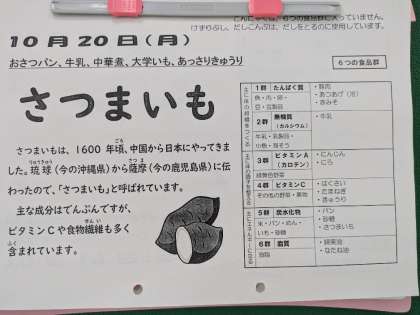 こんにゃくは、6つの食品群に入っていません。
けずりぶし、だしこんぶは、だしをとるのに使用しています。
10月20日(月)
おさつパン、牛乳、中華煮、大学いも、あっさりきゅうり
6つの食品群
さつまいも
さつまいもは、1600年頃、中国から日本にやってきま
した。琉球(今の沖縄県)から薩摩(今の鹿児島県)に伝
わったので、「さつまいも」と呼ばれています。
主な成分はでんぷんですが、
ビタミンCや食物繊維も多く
含まれています。
1群 たんぱく質
魚・肉・卵・
豆・豆製品
・豚肉
・あつあげ
・赤みそ
2群 無機質
(カルシウム)
牛乳・乳製品・
小魚・海そう
・牛乳
3群 ビタミンA
(カロチン)
緑黄色野菜
・にんじん
・にら
4群 ビタミンC
その他の野菜・果物
・はくさい
・たまねぎ
・きゅうり
5群 炭水化物
米・パン・めん・
いも・砂糖
・パン
・砂糖
・さつまいも
6群 脂質
油脂
・なたね油